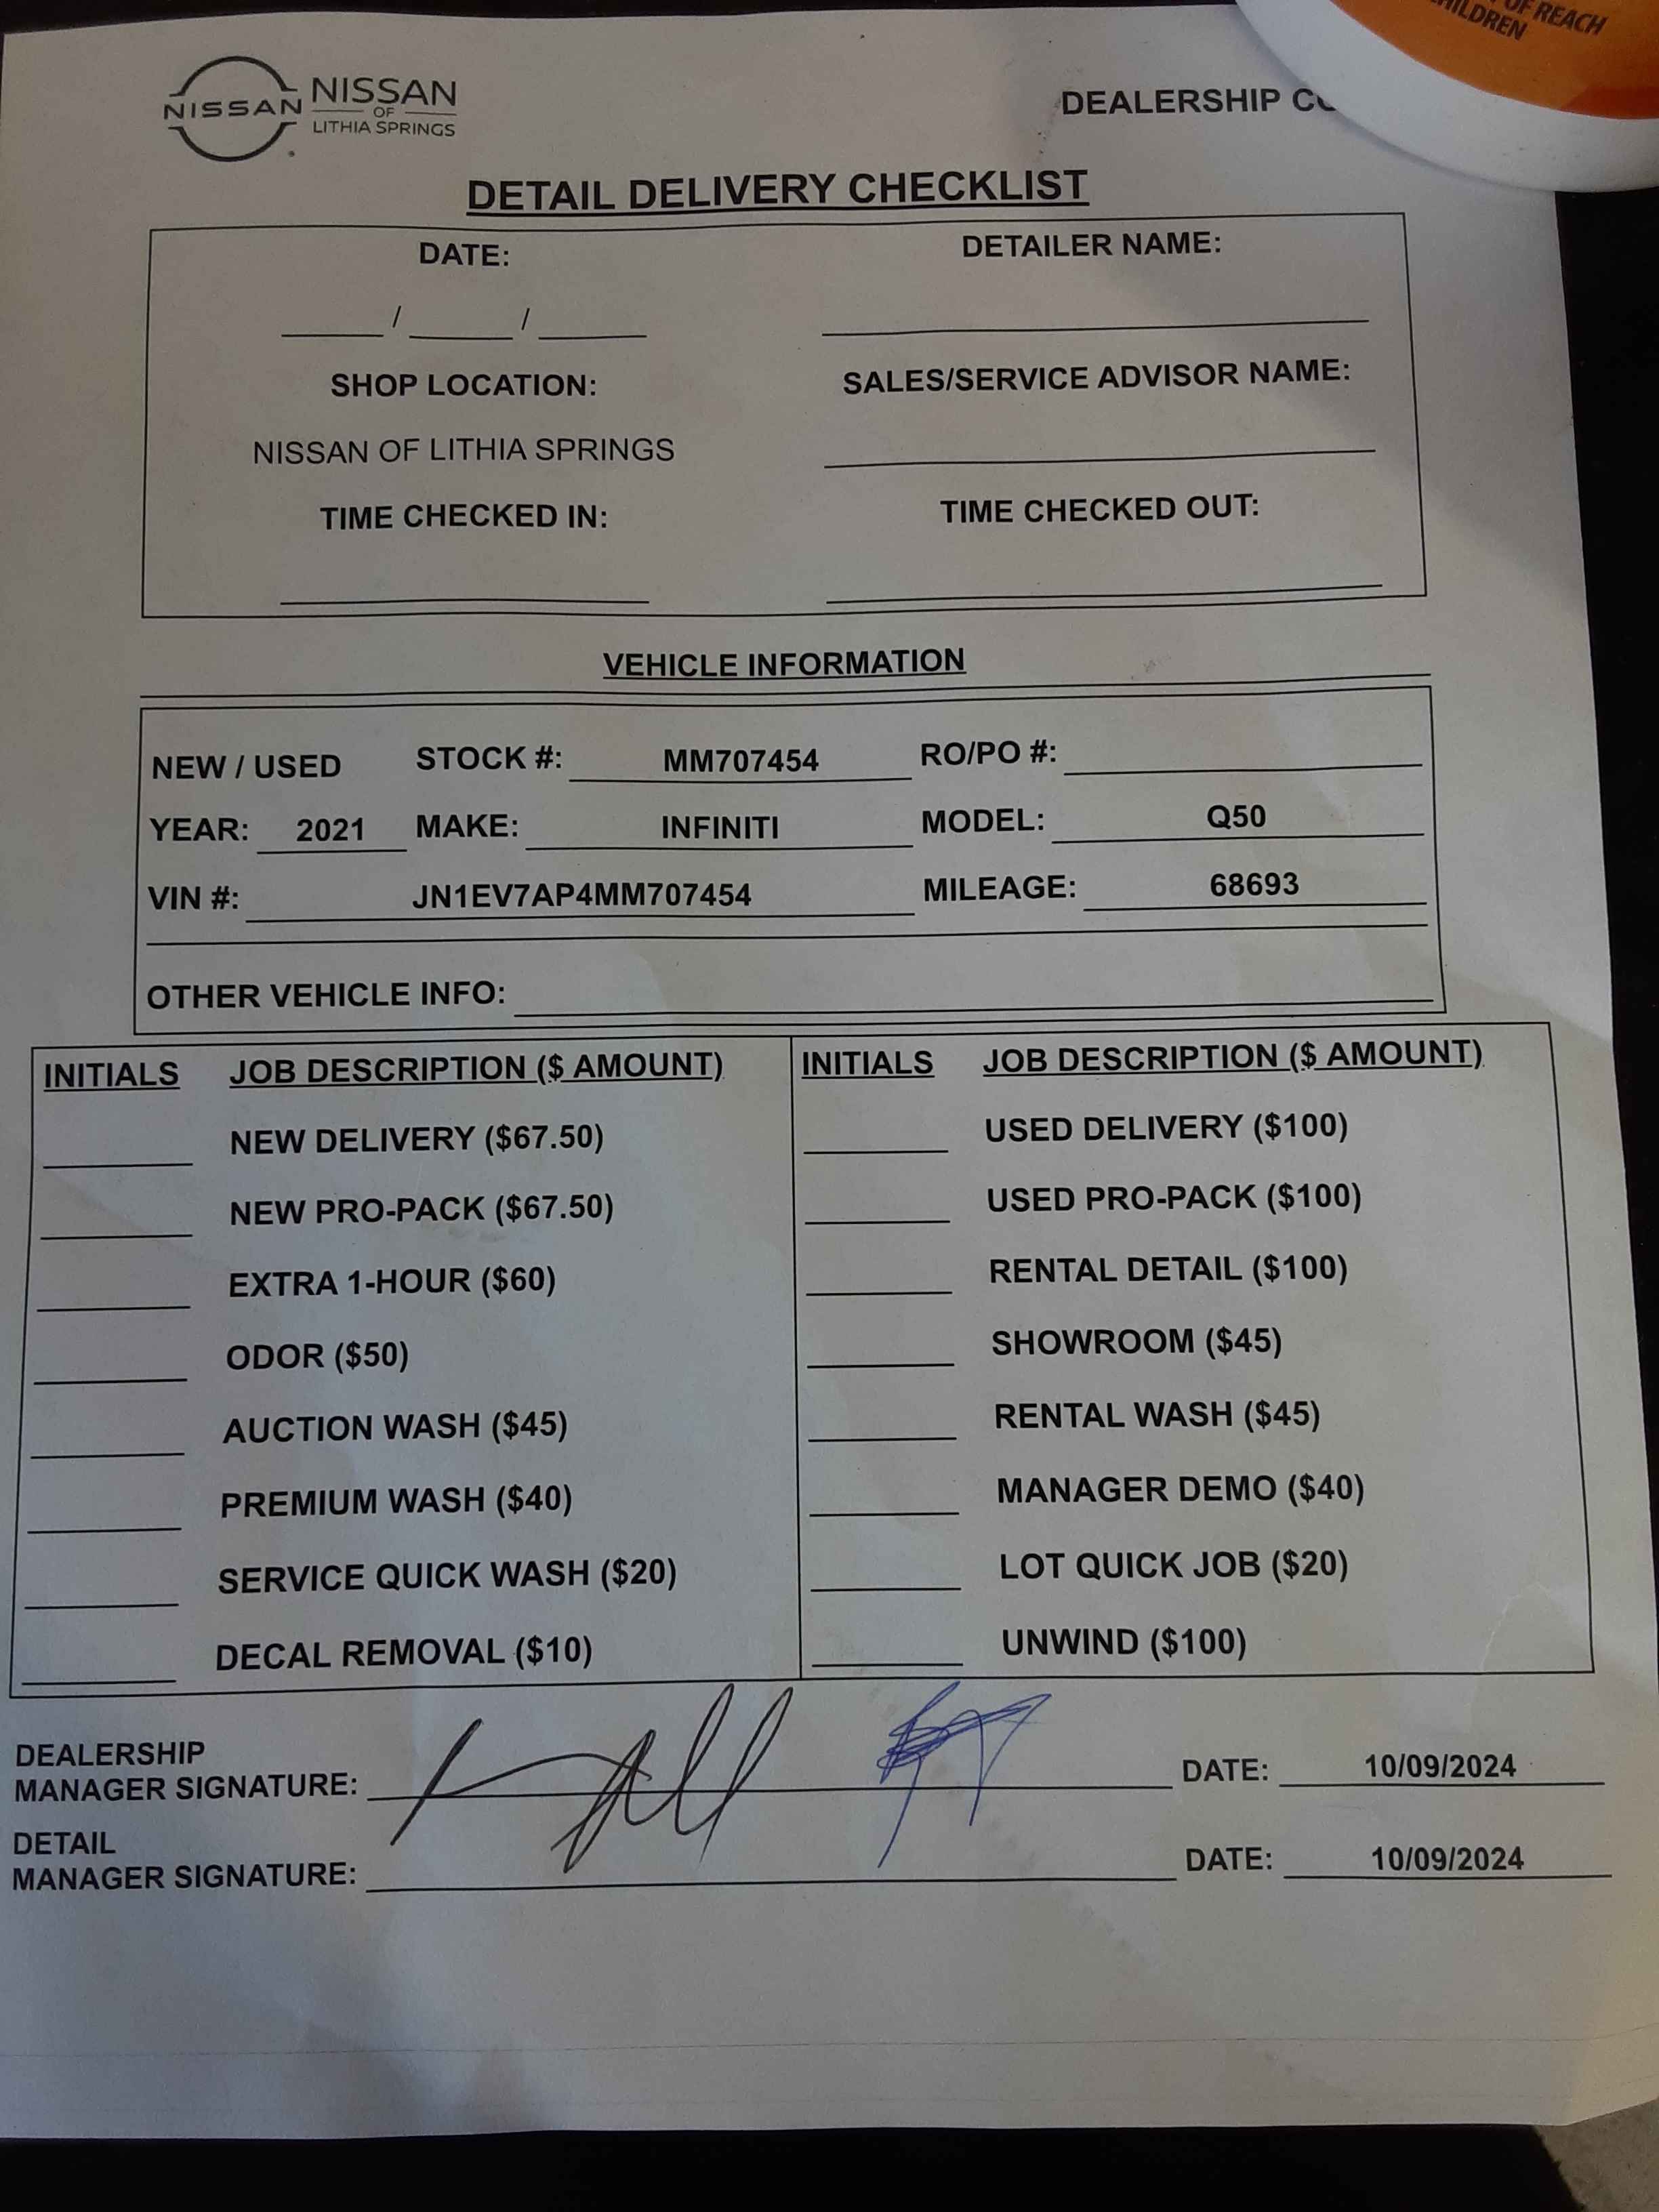 OF REACH
CHILDREN
NISSAN
NISSAN
OF
LITHIA SPRINGS
DEALERSHIP
DETAIL DELIVERY CHECKLIST
DATE: DETAILER NAME:
____/____/____
SHOP LOCATION: SALES/SERVICE ADVISOR NAME:
NISSAN OF LITHIA SPRINGS
TIME CHECKED IN: TIME CHECKED OUT:
VEHICLE INFORMATION
NEW / USED STOCK #: MM707454 RO/PO #:
YEAR: 2021 MAKE: INFINITI MODEL: Q50
VIN #: JN1EV7AP4MM707454 MILEAGE: 68693
OTHER VEHICLE INFO:
INITIALS JOB DESCRIPTION ($ AMOUNT) INITIALS JOB DESCRIPTION ($ AMOUNT)
NEW DELIVERY ($67.50) USED DELIVERY ($100)
NEW PRO-PACK ($67.50) USED PRO-PACK ($100)
EXTRA 1-HOUR ($60) RENTAL DETAIL ($100)
ODOR ($50) SHOWROOM ($45)
AUCTION WASH ($45) RENTAL WASH ($45)
PREMIUM WASH ($40) MANAGER DEMO ($40)
SERVICE QUICK WASH ($20) LOT QUICK JOB ($20)
DECAL REMOVAL ($10) UNWIND ($100)
DEALERSHIP
MANAGER SIGNATURE: DATE: 10/09/2024
DETAIL
MANAGER SIGNATURE: DATE: 10/09/2024